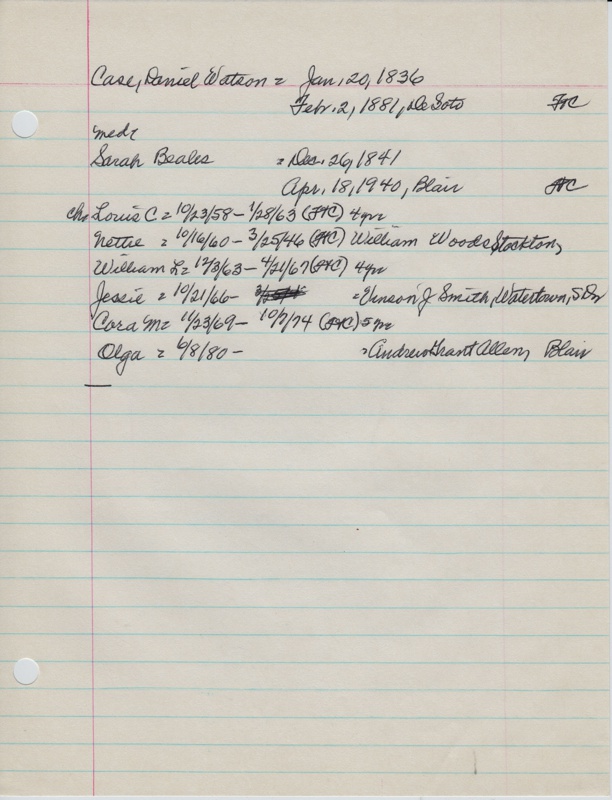 Case, Daniel Watson = Jan, 20, 1836
Febr. 2, 1881, DeSoto FtC
med:
Sarah Beales = Dec. 26, 1841
Apr, 18, 1940, Blair FtC
chn Louis C = 10/23/58 – 1/28/63 (FtC) 4yr
Nettie = 10/16/60 – 3/25/46 (FtC) William Woods Stockton,
William L = 12/3/63 – 4/21/67 (FtC) 4yr
Jessie = 10/21/66 – = Vinson J Smith, Watertown, S D
Cora M = 11/23/69 – 10/7/74 (FtC) 5
Olga = 6/8/80 – = Andrew Grant Allen, Blair